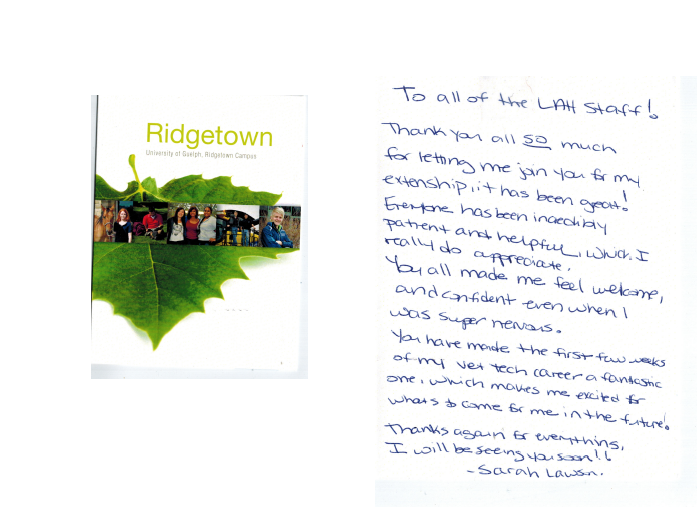 Ridgetown
University of Guelph, Ridgetown Campus
To all of the LAH Staff!
Thank you all so much
for letting me join you for my
extenship, it has been great!
Everyone has been incredibly
patient and helpful, which I
really do appreciate.
You all made me feel welcome,
and confident even when I
was super nervous.
You have made the first few weeks
of my vet tech career a fantastic
one, which makes me excited for
whats to come for me in the future!
Thanks again for everything,
I will be seeing you soon!!
- Sarah Lawson.